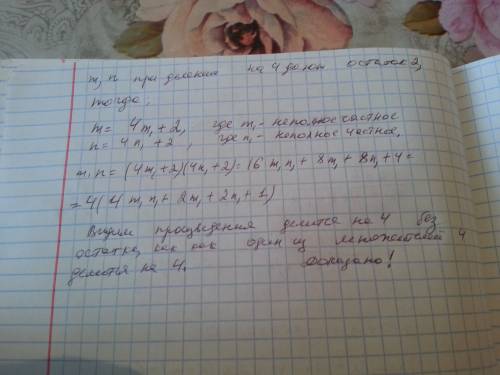 m, n при делении на 4 дают остаток 2,
тогда:
m = 4m₁ + 2, где m₁ - неполное частное
n = 4n₁ + 2, где n₁ - неполное частное,
m·n = (4m₁+2)(4n₁+2) = 16m₁n₁ + 8m₁ + 8n₁ + 4 =
= 4(4m₁n₁ + 2m₁ + 2n₁ + 1)
Видим произведения делится на 4 без
остатка, как как один из множителей 4
делится на 4. Доказано!